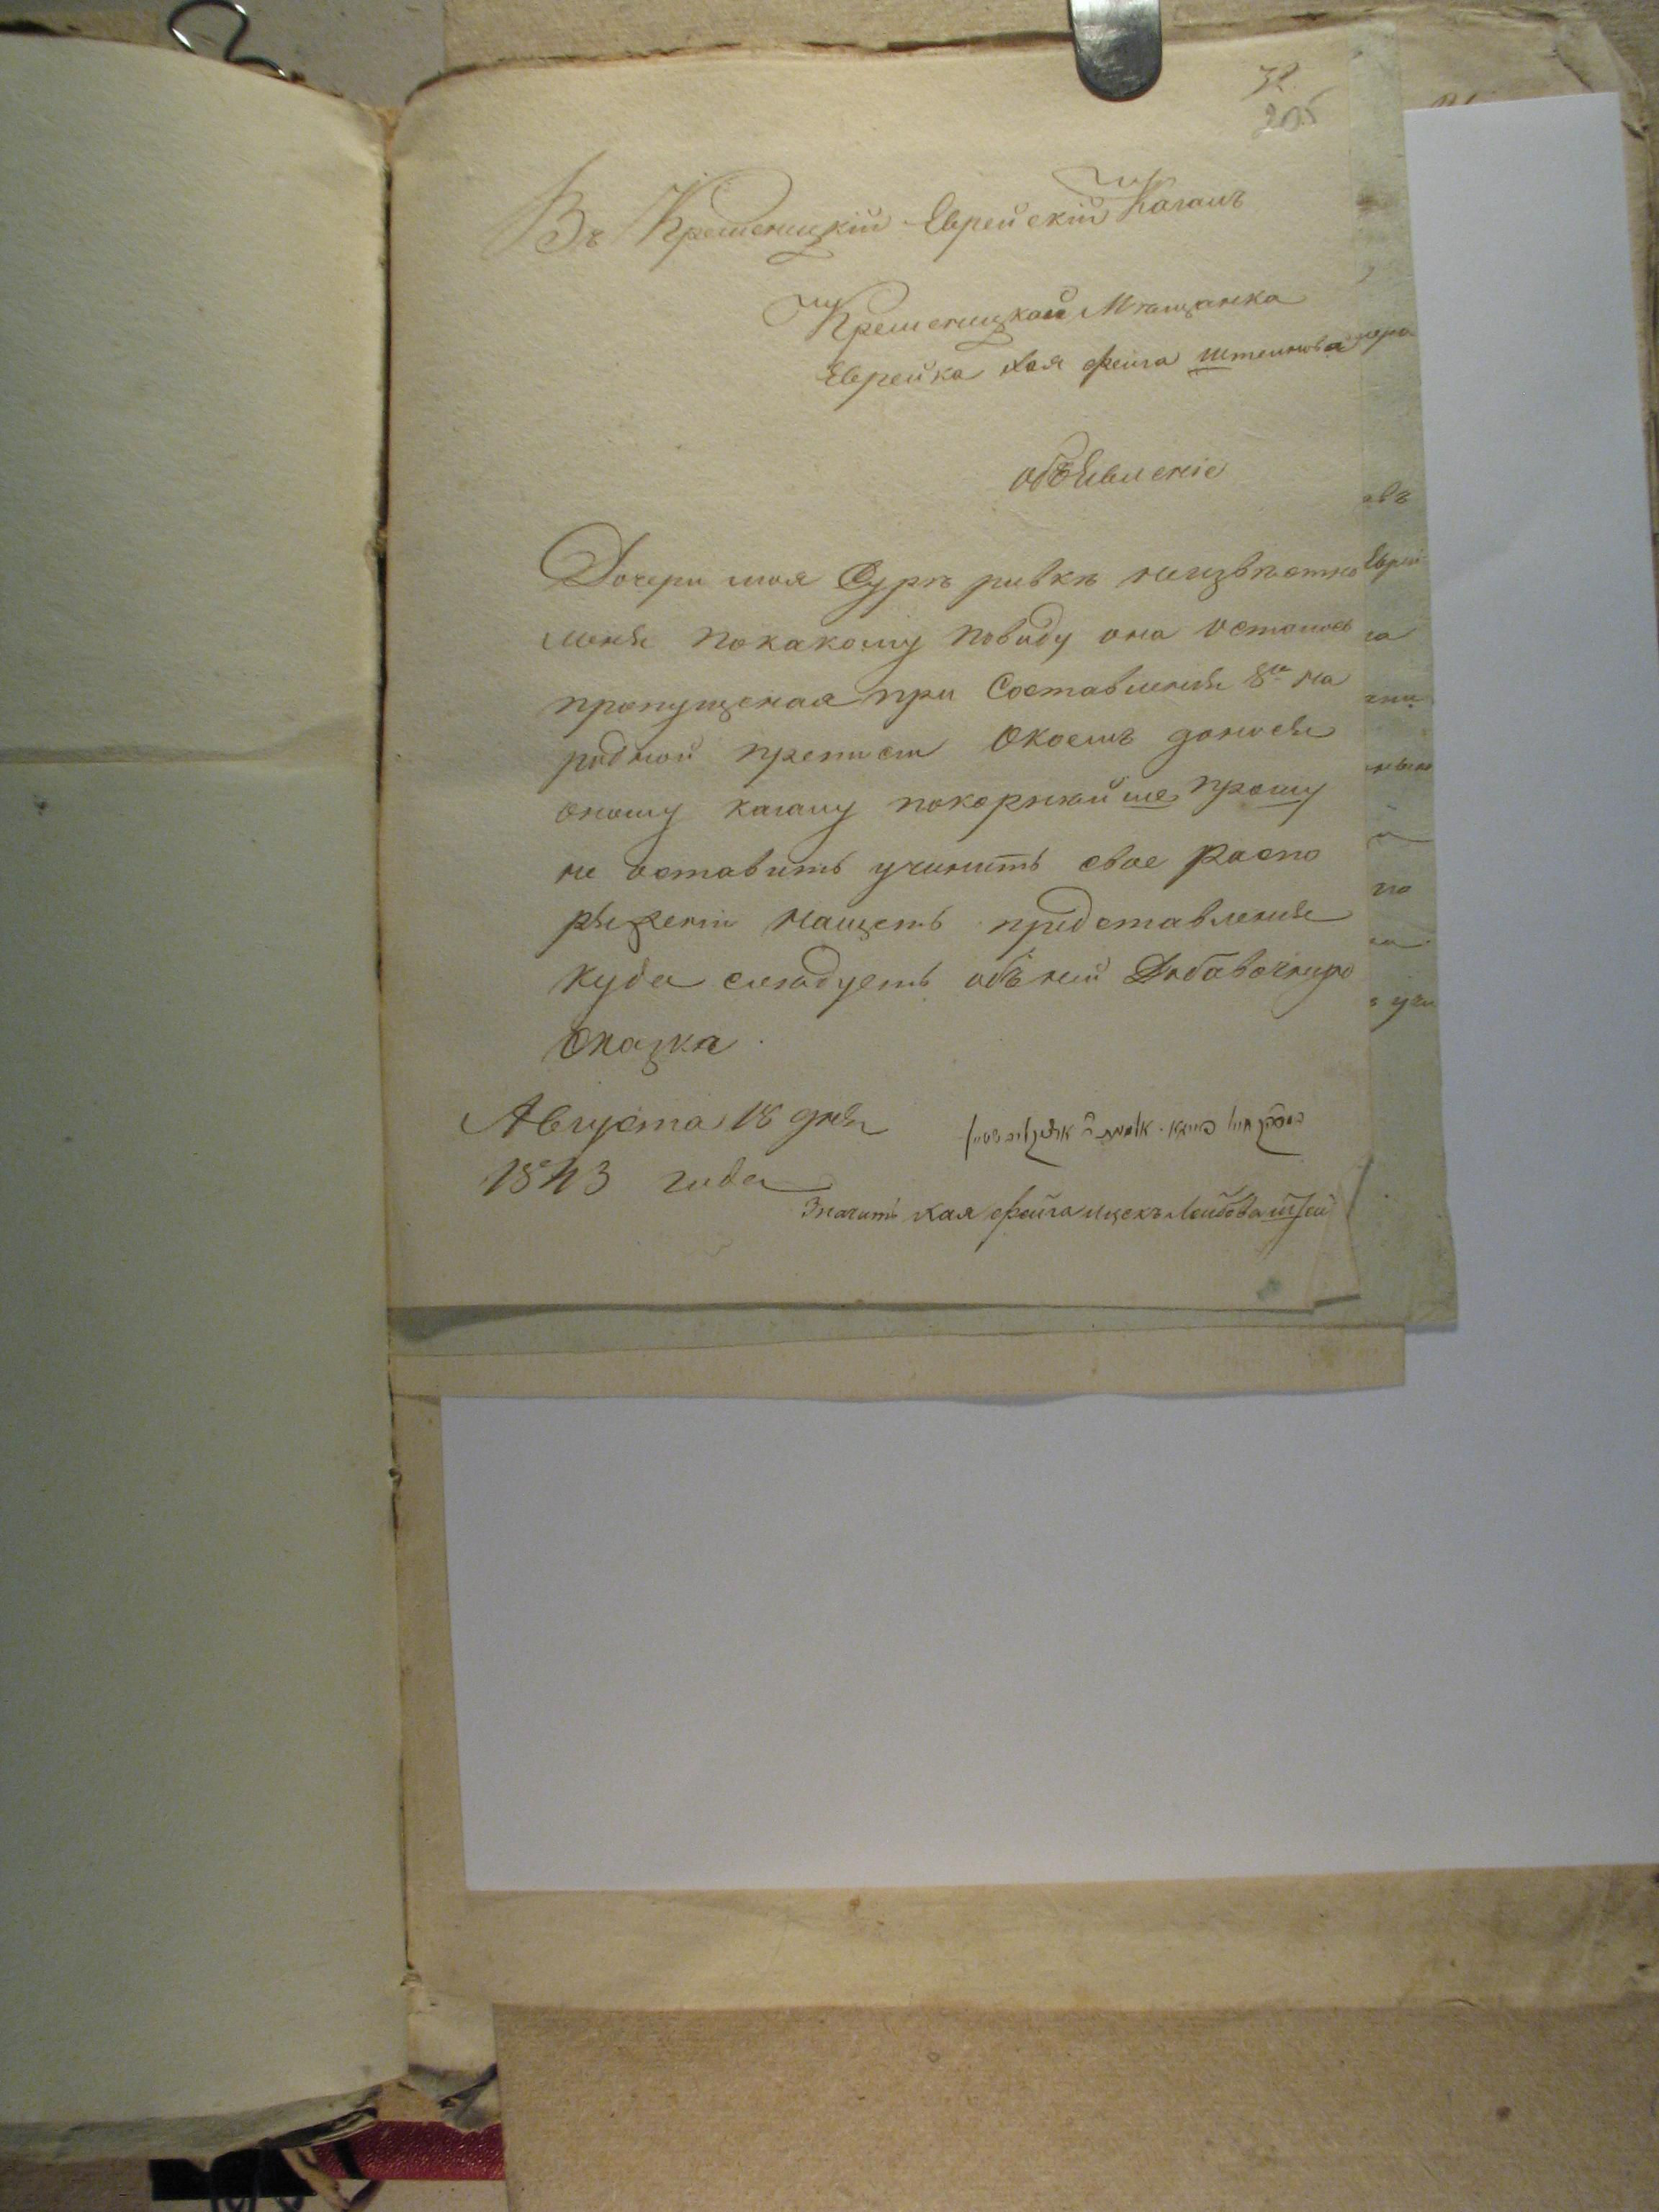 32
205
Въ Кременицкій Еврейскій Кагалъ
Кременицкой Мѣщанка
Еврейка хая фейга Штеинова
объявленіе
Дочери моя Сурѣ ривкѣ неизвѣстно
менѣ покакому поводу она осталось
пропущеная при Составленія 8й на
родной преписи О коемъ доносы
оному кагалу покорнѣйше прошу
не оставить учинить свое распо
ряженія нащеть представленія
куда следуеть объ ней Добавочную
сказка
Августа 18 дня
1843 года
Значить хая фейга ицекъ Леибова